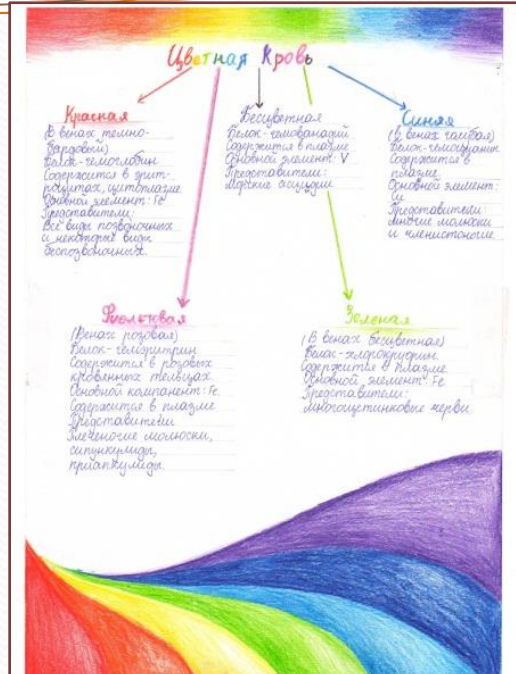 Цветная Кровь
Красная
(В венах темно-
бардовый)
Белок-гемоглобин
Содержится в эрит-
роцитах, цитоплазме
Основной элемент: Fe
Представители:
Все виды позвоночных
и некоторые виды
беспозвоночных.
Бесцветная
Белок-гемованадий
Содержится в плазме
Основной элемент: V
Представители:
Морские асцидии
Синяя
(В венах голубая)
Белок-гемоцианин
Содержится в
плазме
Основной элемент:
Cu
Представители:
Многие молюски
и членистоногие
Фиолетовая
(Венах розовая)
Белок-гемэритрин
Содержится в розовых
кровянных тельцах.
Основной компанент: Fe.
Содержится в плазме
Представители
Плеченогие молюски,
сипункулиды,
приапкулиды.
Зеленая
(В венах бесцветная)
Белок-хлорокруорин.
Содержится в плазме
Основной элемент: Fe
Представители:
Многощетинковые черви